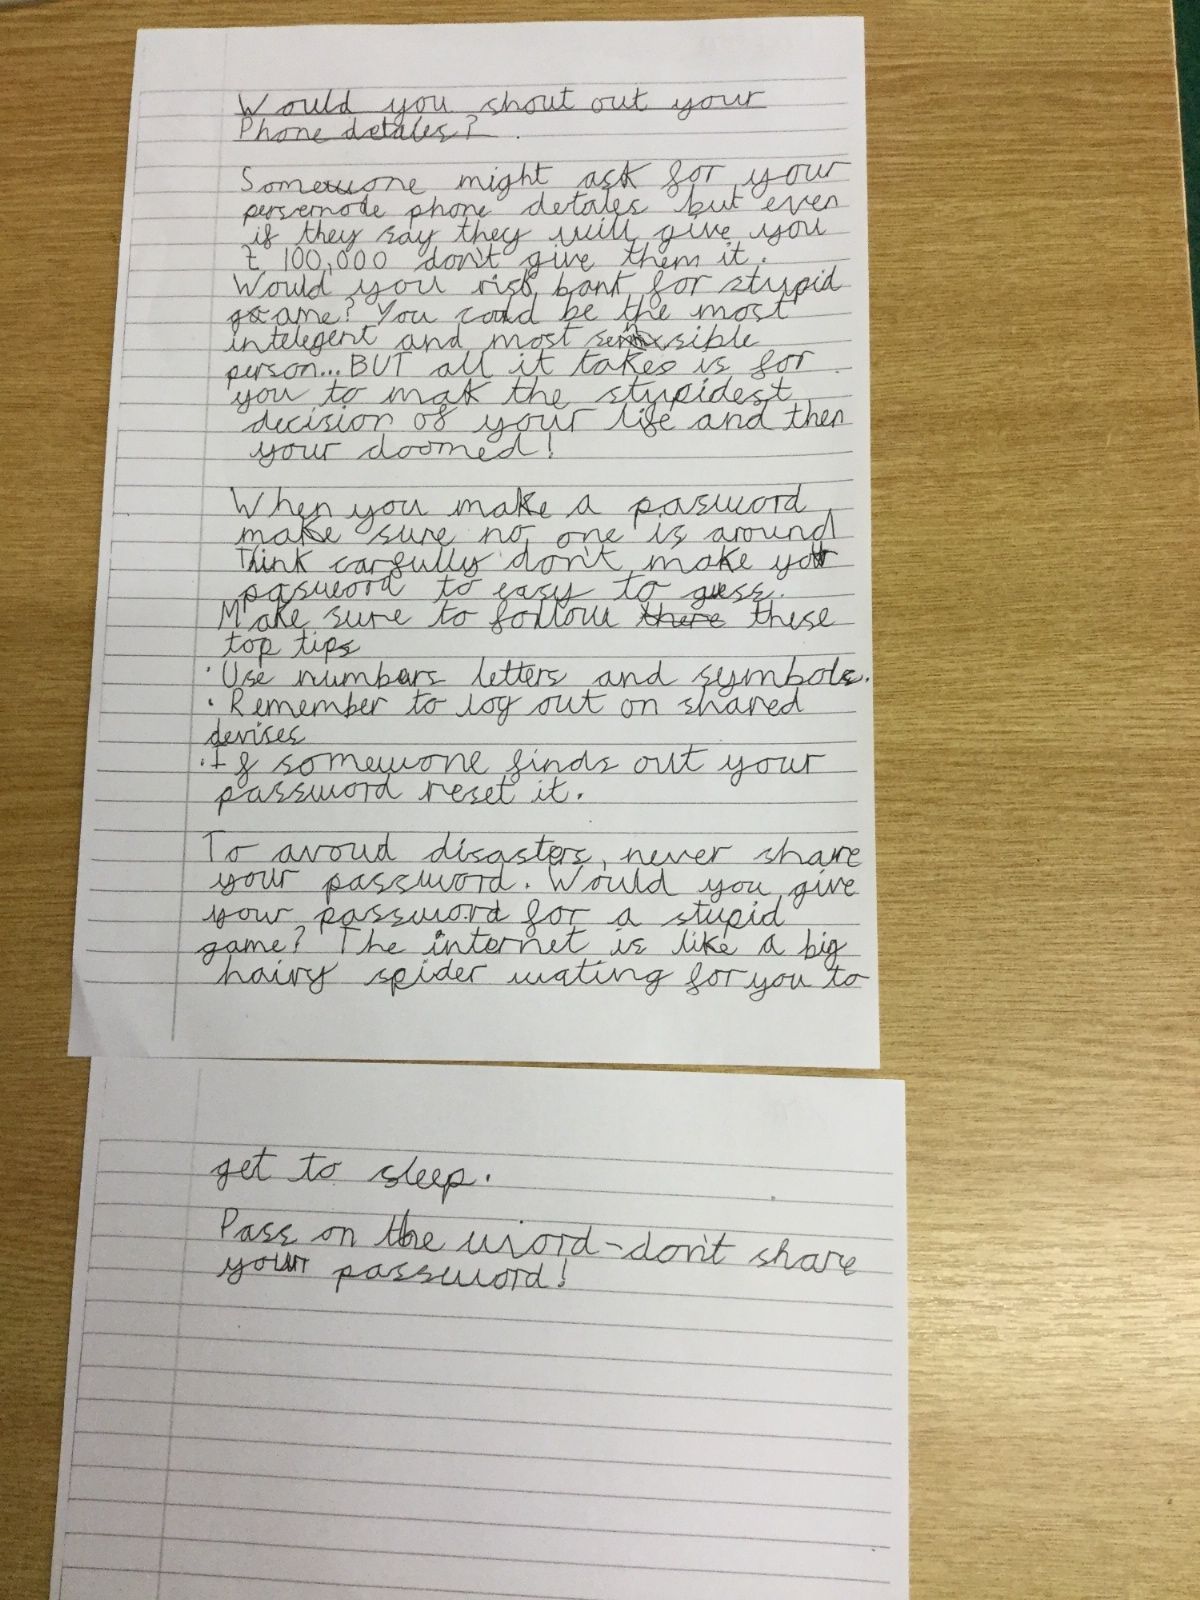 Would you shout out your
Phone detales?
Somewone might ask for your
persernode phone detales but even
if they say they will give you
£ 100,000 don't give them it.
Would you risk bank for stupid
game? You could be the most
intelegent and most sensible
person... BUT all it takes is for
you to mak the stupidest
decision of your life and then
your doomed!
When you make a pasword
make sure no one is around
Think carfully don't make your
pasword to easy to guess.
Make sure to follow there these
top tips
· Use numbers letters and symbols.
· Remember to log out on shared
devises
· If somewone finds out your
password reset it.
To avoud disasters, never share
your password. Would you give
your password for a stupid
game? The internet is like a big
hairy spider wating for you to
get to sleep.
Pass on the word - don't share
your password!